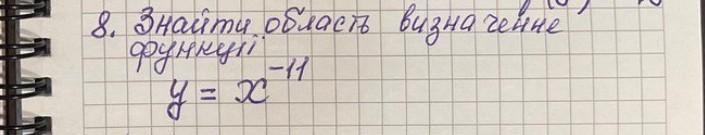 8. Знайти область визначенне
функції
y = x⁻¹¹